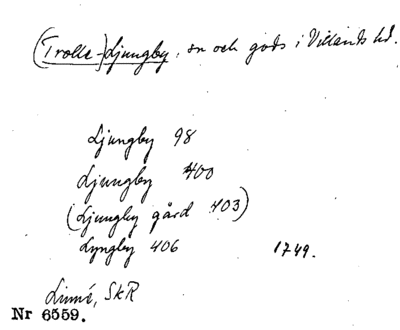 (Trolle-)Ljungby, sn och gods i Villands hd.
Ljungby 98
Ljungby 400
(Ljungby gård 403)
Lyngby 406 1749.
Linné, SkR
Nr 6559.